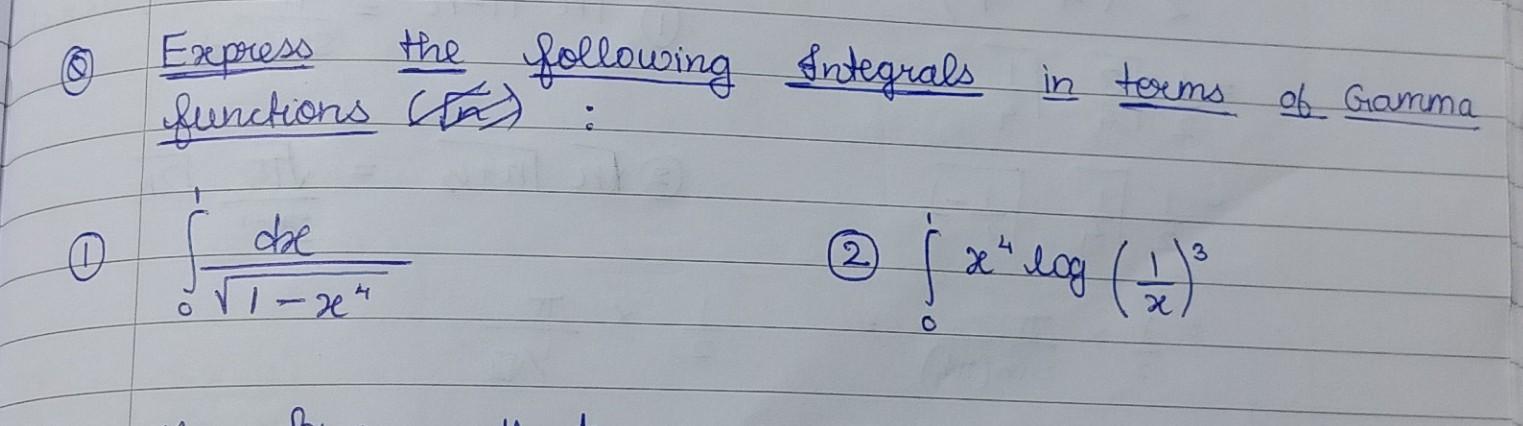 Q Express the following Integrals in terms of Gamma
functions (√n) :
① ∫₀¹ dx / √(1 - x⁴) ② ∫₀¹ x⁴ log (1/x)³